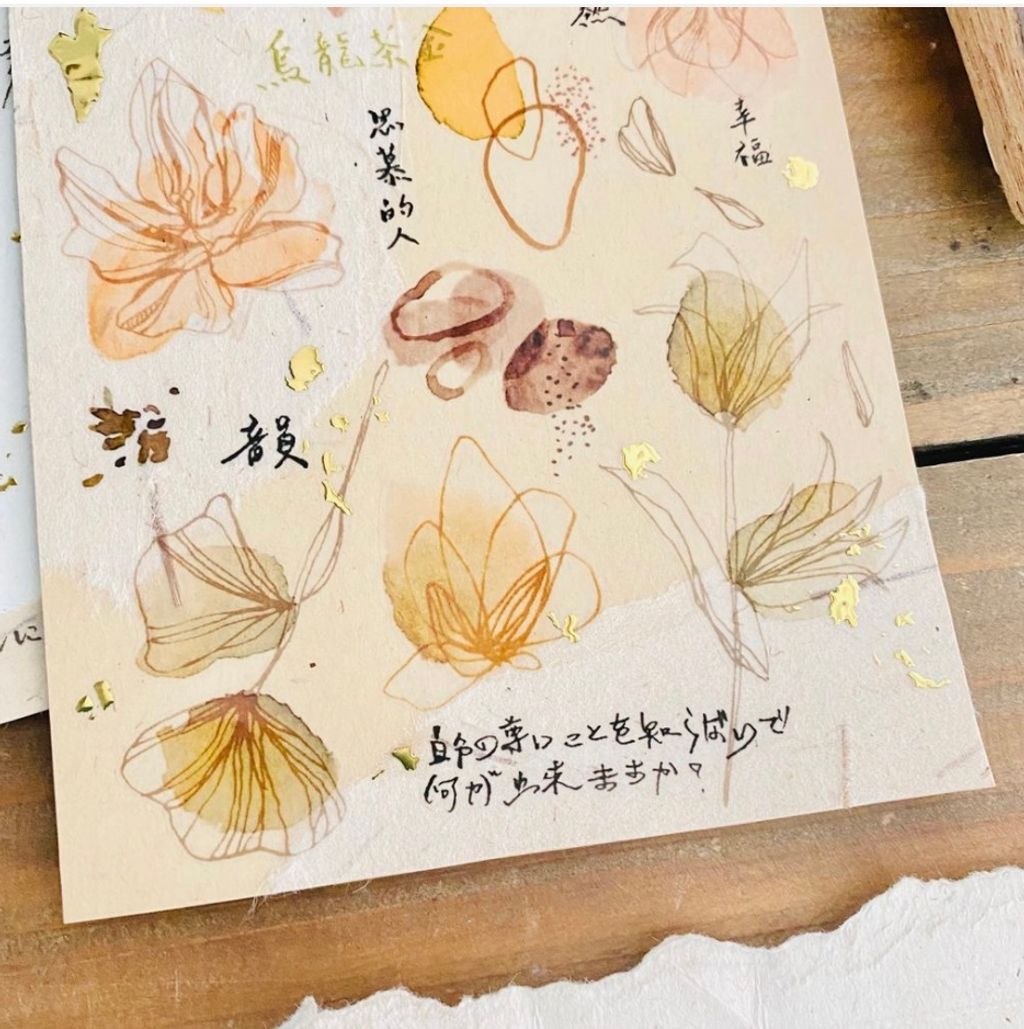 烏龍茶金
然
思慕的人
幸福
韻
自分の尊いことを知らないで
何が出来ますか?